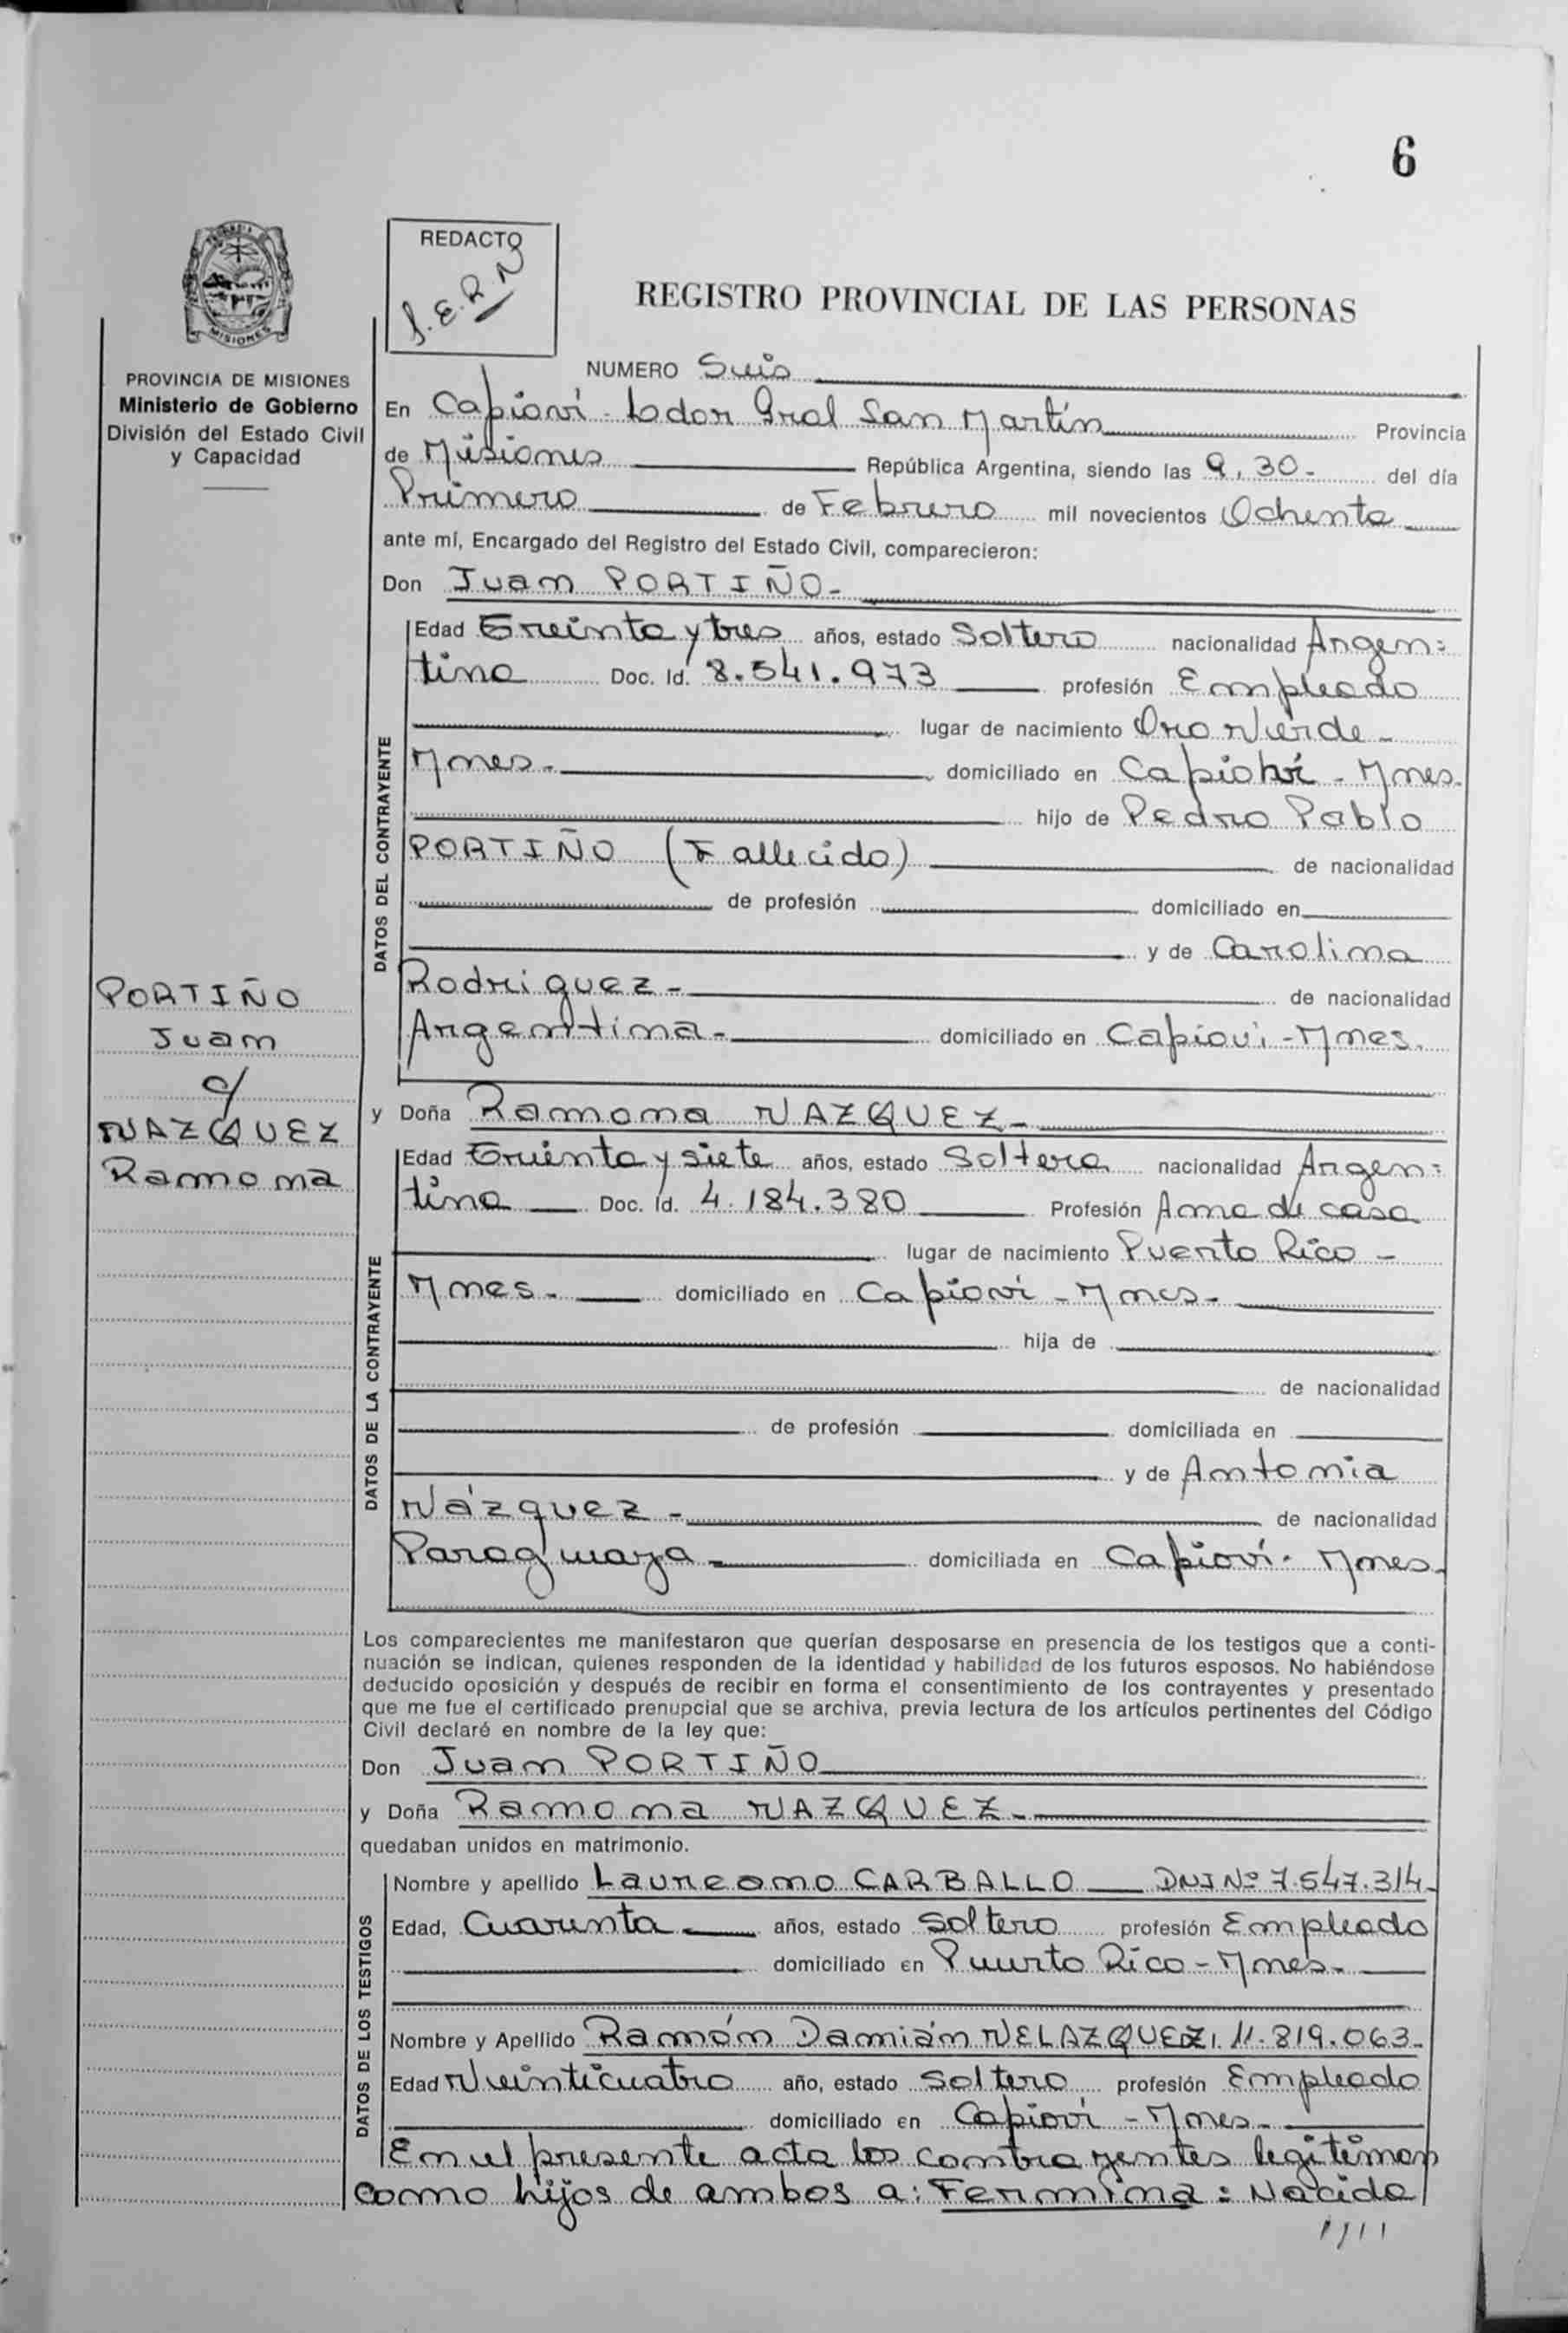 6
REDACTO
J.E.R.N
REGISTRO PROVINCIAL DE LAS PERSONAS
MISIONES
PROVINCIA DE MISIONES
Ministerio de Gobierno
División del Estado Civil
y Capacidad
NUMERO Seis
En Capioví - Ldor Gral San Martín Provincia
de Misiones República Argentina, siendo las 9,30- del día
Primero de Febrero mil novecientos Ochenta
ante mí, Encargado del Registro del Estado Civil, comparecieron:
Don Juan PORTIÑO-
DATOS DEL CONTRAYENTE
Edad Treinta y tres años, estado Soltero nacionalidad Argen=
tina Doc. Id. 8.541.973 profesión Empleado
lugar de nacimiento Oro Verde-
Mnes- domiciliado en Capioví - Mnes-
hijo de Pedro Pablo
PORTIÑO (Fallecido) de nacionalidad
de profesión domiciliado en
y de Carolina
Rodriguez- de nacionalidad
Argentina- domiciliado en Capiovi - Mnes.
PORTIÑO
Juan
c/
VAZQUEZ
Ramona
y Doña Ramona VAZQUEZ-
DATOS DE LA CONTRAYENTE
Edad Treinta y siete años, estado Soltera nacionalidad Argen=
tina Doc. Id. 4.184.380 Profesión Ama de casa
lugar de nacimiento Puerto Rico -
Mnes- domiciliado en Capioví - Mnes-
hija de
de nacionalidad
de profesión domiciliada en
y de Antonia
Vázquez- de nacionalidad
Paraguaya- domiciliada en Capioví- Mnes-
Los comparecientes me manifestaron que querían desposarse en presencia de los testigos que a conti-
nuación se indican, quienes responden de la identidad y habilidad de los futuros esposos. No habiéndose
deducido oposición y después de recibir en forma el consentimiento de los contrayentes y presentado
que me fue el certificado prenupcial que se archiva, previa lectura de los artículos pertinentes del Código
Civil declaré en nombre de la ley que:
Don Juan PORTIÑO
y Doña Ramona VAZQUEZ-
quedaban unidos en matrimonio.
DATOS DE LOS TESTIGOS
Nombre y apellido Laureano CARBALLO DNI Nº 7.547.314-
Edad, Cuarenta- años, estado Soltero profesión Empleado
domiciliado en Puerto Rico - Mnes-
Nombre y Apellido Ramón Damián VELAZQUEZ 11.819.063-
Edad Veinticuatro año, estado Soltero profesión Empleado
domiciliado en Capioví - Mnes-
En el presente acta los contrayentes legitiman
como hijos de ambos a: Fermina: Nacida